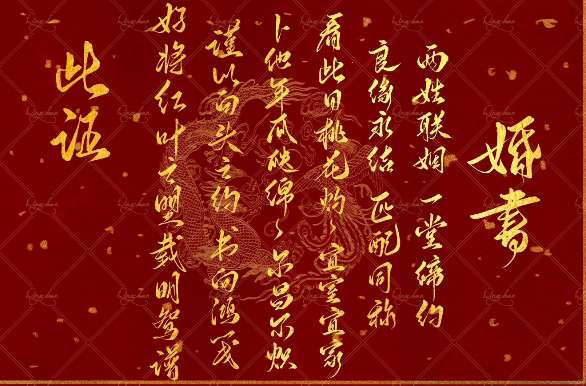 婚书
两姓联姻 一堂缔约
良缘永结 匹配同称
看此日桃花灼灼 宜室宜家
卜他年瓜瓞绵绵 尔昌尔炽
谨以白头之约 书向鸿笺
好将红叶之盟 载明鸳谱
此证